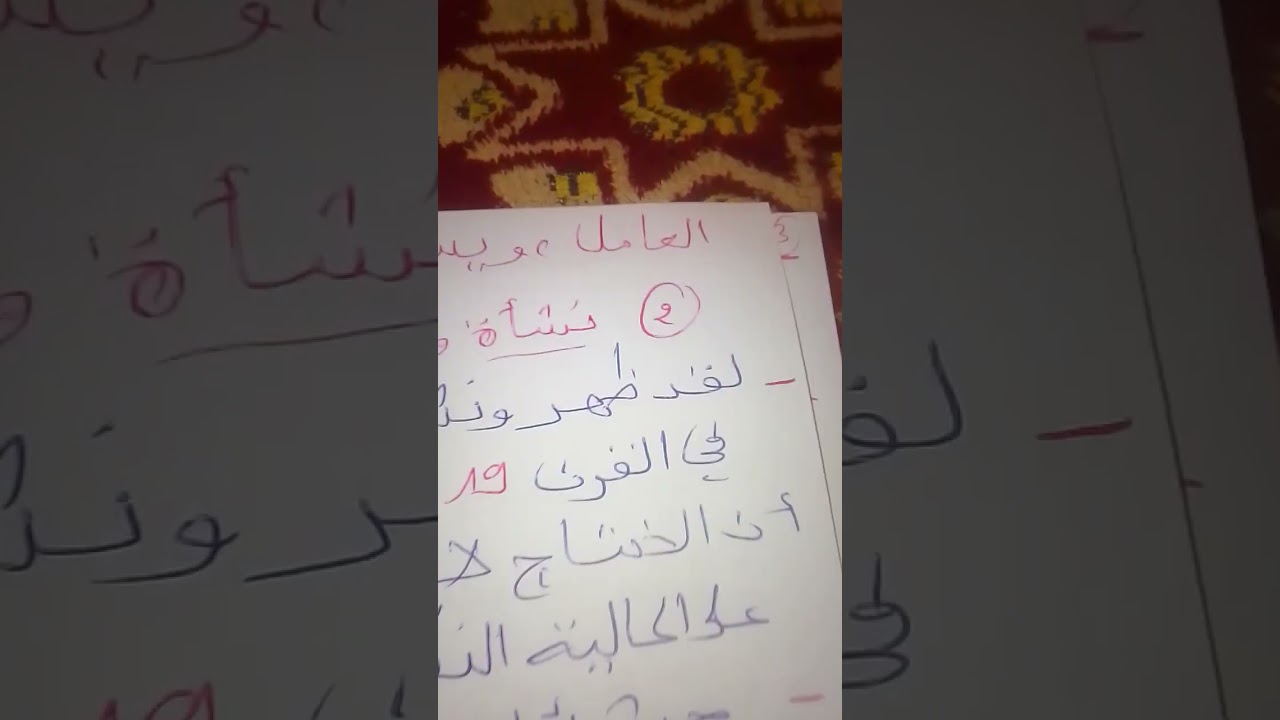 العامل، ويـ
② نشأة و
- لقد ظهر ونشـ
في القرن 19
أن الانتاج لا
على الحالية النـ